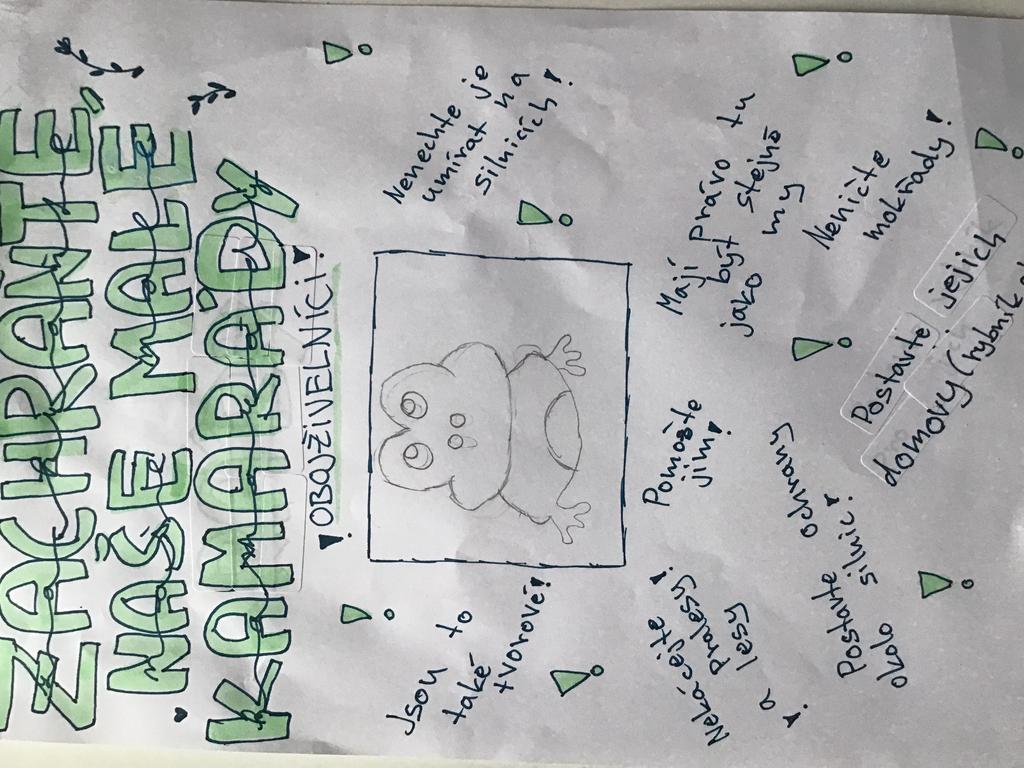 ZACHRAŇTE
NAŠE MALÉ
KAMARÁDY
! OBOJŽIVELNÍCI!
Jsou to
také
tvorové!
Nenechte
umírat je
na
silnicích!
Nekácejte!
Pralesy
! a lesy
Pomožte
jim!
Mají Právo tu
být stejně
jako my
Postavte
okolo silnic!
ochrany
Neničte
mokřady!
Postavte jejich
domovy